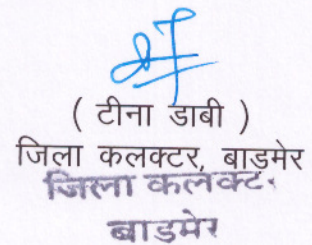 ( टीना डाबी )
जिला कलक्टर, बाडमेर
जिला कलक्ट.
बाडमेर